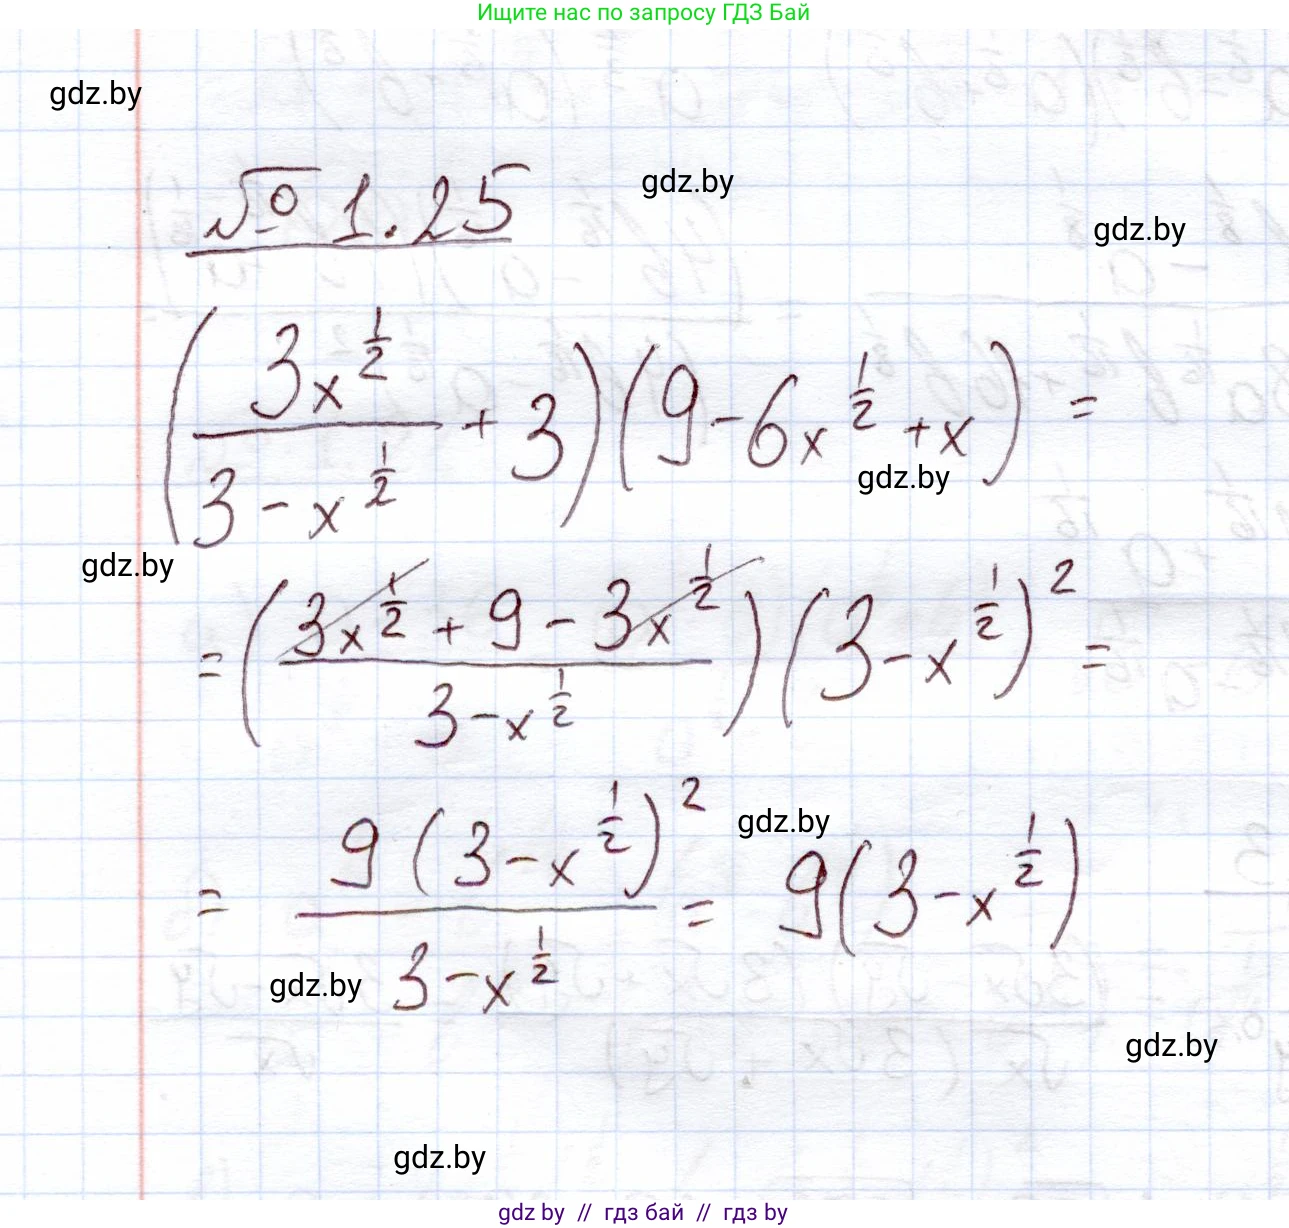 Ищите нас по запросу ГДЗ Бай
gdz.by
№ 1.25
gdz.by
gdz.by
(3x^{1/2} / (3 - x^{1/2}) + 3)(9 - 6x^{1/2} + x) =
gdz.by
gdz.by
= ((3x^{1/2} + 9 - 3x^{1/2}) / (3 - x^{1/2}))(3 - x^{1/2})^2 =
gdz.by
= 9(3 - x^{1/2})^2 / (3 - x^{1/2}) = 9(3 - x^{1/2})
gdz.by
gdz.by
gdz.by
gdz by // гдз бай // гдз by